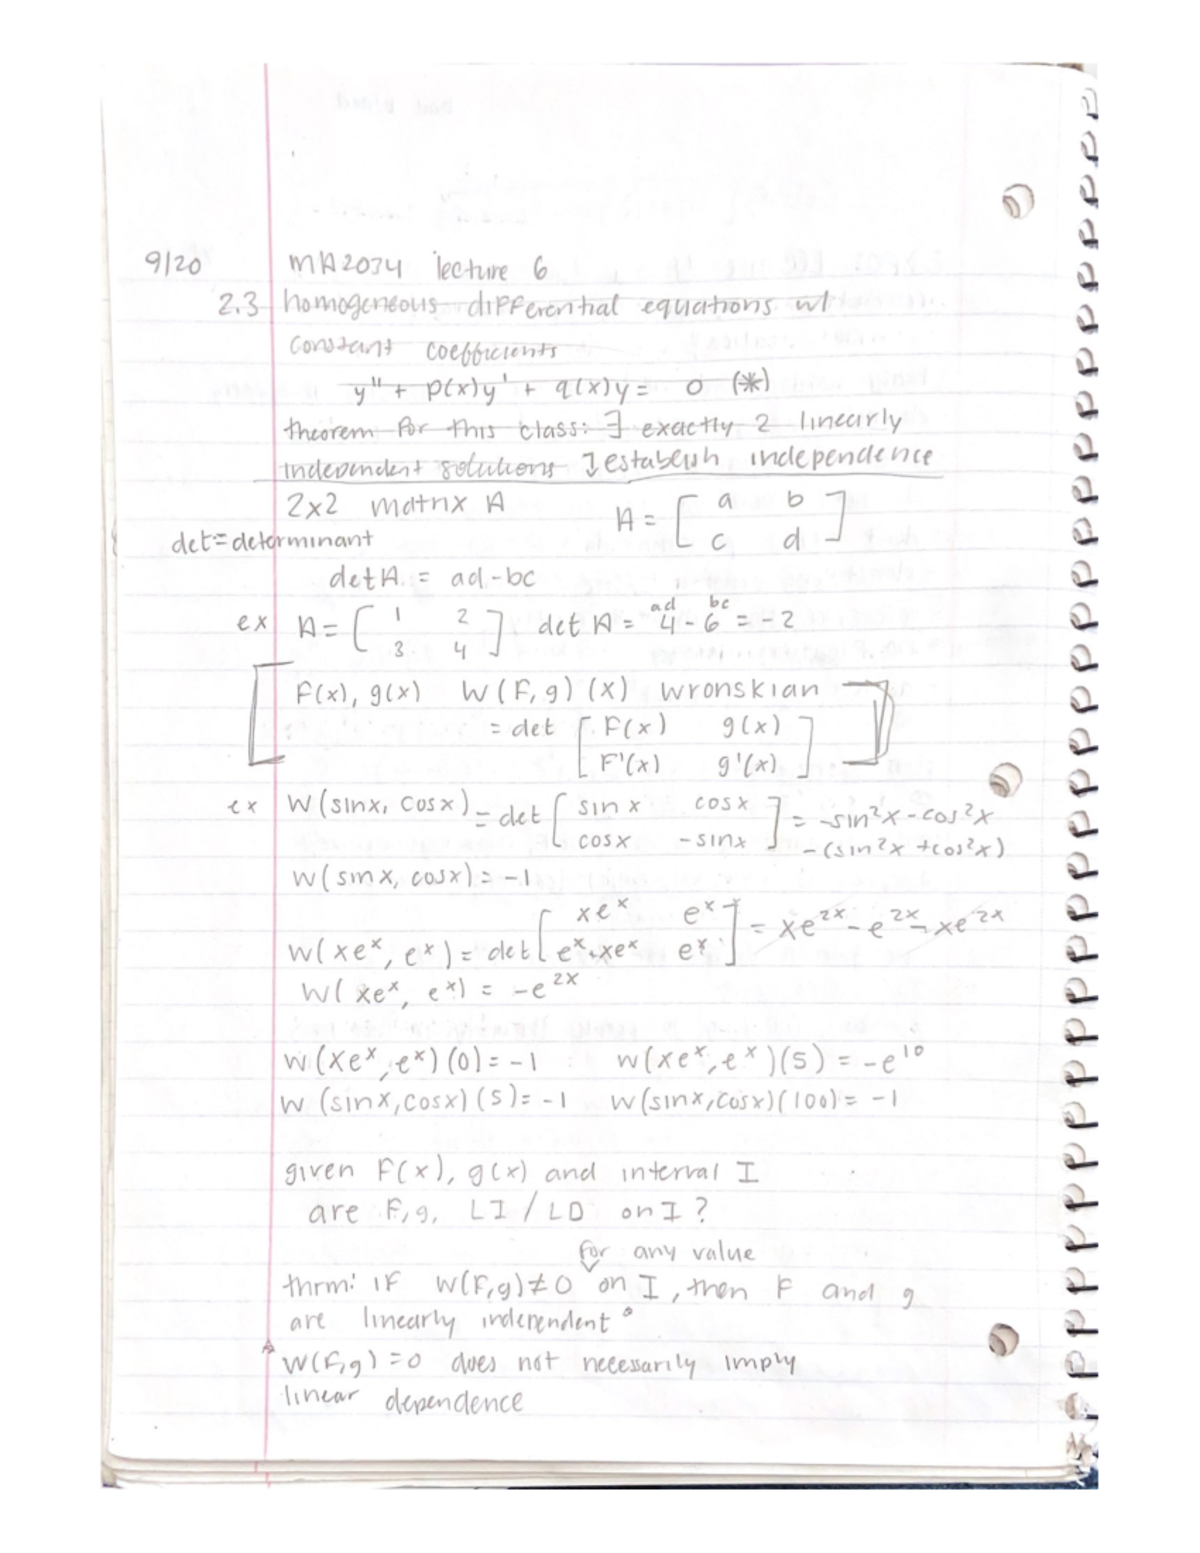 9/20 MA2034 lecture 6
2.3 homogeneous differential equations w/
constant coefficients
y" + p(x)y' + q(x)y = 0 (*)
theorem for this class: ∃ exactly 2 linearly
independent solutions ] establish independence
2x2 matrix A A = [ a b
c d ]
det = determinant
det A = ad - bc
ex A = [ 1 2
3 4 ] det A = 4 - 6 = -2
ad bc
F(x), g(x) W(F,g)(x) wronskian
= det [ F(x) g(x)
F'(x) g'(x) ]
ex W(sinx, cosx) = det [ sin x cos x
cosx -sinx ] = -sin²x - cos²x
-(sin²x + cos²x)
W(sinx, cosx) = -1
W(xeˣ, eˣ) = det [ xeˣ eˣ
eˣ+xeˣ eˣ ] = xe²ˣ - e²ˣ - xe²ˣ
W(xeˣ, eˣ) = -e²ˣ
W(xeˣ, eˣ)(0) = -1 W(xeˣ, eˣ)(5) = -e¹⁰
W(sinx, cosx)(5) = -1 W(sinx, cosx)(100) = -1
given F(x), g(x) and interval I
are F, g, LI / LD on I?
for any value
thrm: IF W(F,g) ≠ 0 on I, then F and g
are linearly independent
W(F,g) = 0 does not necessarily imply
linear dependence